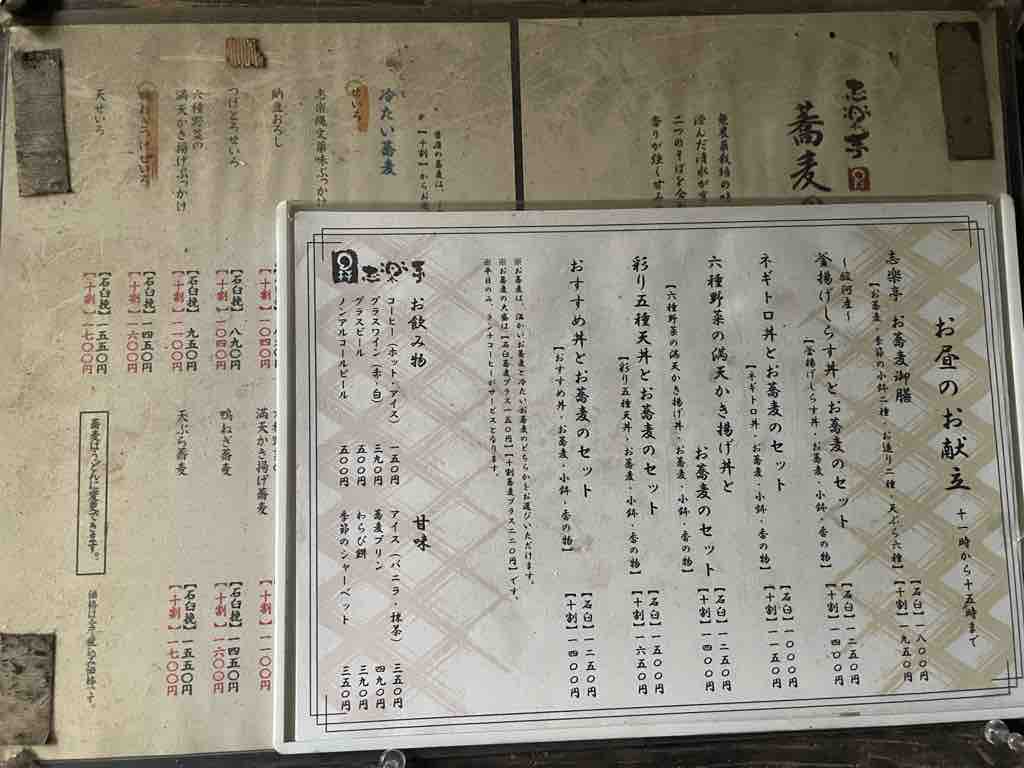 お昼のお献立 十一時から十五時まで
志楽亭 お蕎麦御膳
【お蕎麦・季節の小鉢二種・お造り二種・天ぷら六種】
【石臼】一八〇〇円
【十割】一九五〇円
釜揚げしらす丼とお蕎麦のセット
～駿河産～
【釜揚げしらす丼・お蕎麦・小鉢・香の物】
【石臼】一二五〇円
【十割】一四〇〇円
ネギトロ丼とお蕎麦のセット
【ネギトロ丼・お蕎麦・小鉢・香の物】
【石臼】一〇〇〇円
【十割】一一五〇円
六種野菜の満天かき揚げ丼と
お蕎麦のセット
【六種野菜の満天かき揚げ丼・お蕎麦・小鉢・香の物】
【石臼】一二五〇円
【十割】一四〇〇円
彩り五種天丼とお蕎麦のセット
【彩り五種天丼・お蕎麦・小鉢・香の物】
【石臼】一五〇〇円
【十割】一六五〇円
おすすめ丼とお蕎麦のセット
【おすすめ丼・お蕎麦・小鉢・香の物】
【石臼】一二五〇円
【十割】一四〇〇円
※お蕎麦は、温かいお蕎麦と冷たいお蕎麦のどちらかをお選びいただけます。
※お蕎麦の大盛は【石臼蕎麦プラス一五〇円】【十割蕎麦プラス二二〇円】です。
※平日のみ、ランチコーヒーがサービスとなります。
志楽亭
お飲み物
コーヒー（ホット・アイス） 一五〇円
グラスワイン（赤・白） 三九〇円
グラスビール 五〇〇円
ノンアルコールビール 五〇〇円
甘味
アイス（バニラ・抹茶） 三五〇円
蕎麦プリン 四九〇円
わらび餅 三九〇円
季節のシャーベット 三五〇円
志楽亭
蕎麦
無農薬栽培の
澄んだ清水が
二つのそばを
香りが強く甘み
当店の蕎麦は、
【十割】からお
冷たい蕎麦
せいろ
志楽縄文薬味ぶっかけ
納豆おろし
【十割】
つけとろせいろ
【石臼挽】八九〇円
【十割】一〇四〇円
六種野菜の
満天かき揚げぶっかけ
【石臼挽】九五〇円
【十割】一一〇〇円
鴨ねぎつけせいろ
【石臼挽】一四五〇円
【十割】一六〇〇円
天せいろ
【石臼挽】一五五〇円
【十割】一七〇〇円
満天かき揚げ蕎麦
【十割】一一〇〇円
鴨ねぎ蕎麦
【石臼挽】一四五〇円
【十割】一六〇〇円
天ぷら蕎麦
【石臼挽】一五五〇円
【十割】一七〇〇円
蕎麦はうどんに変更できます。
価格は全て税込み価格です。